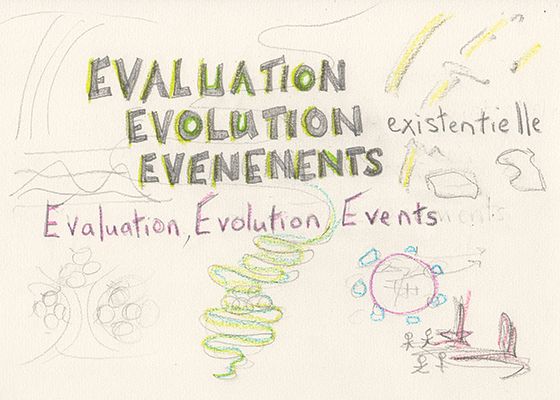 EVALUATION
EVOLUTION existentielle
EVENEMENTS
Evaluation, Evolution, Events